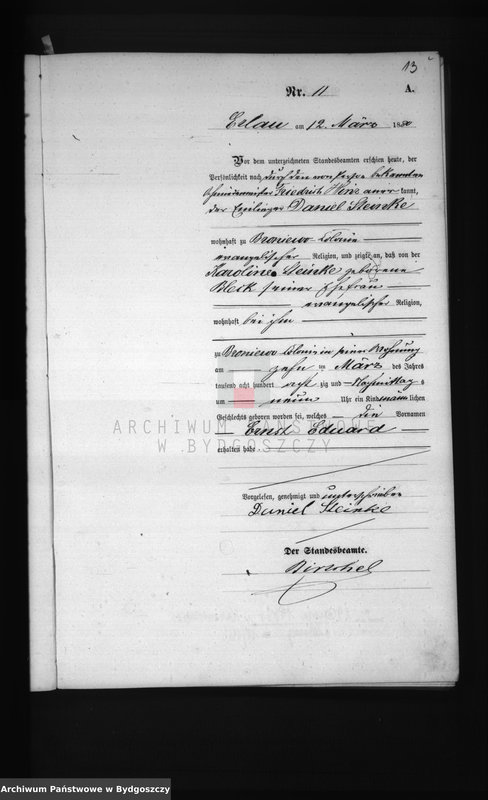 13
Nr. 11
A.
Erlau am 12. März 1880
Vor dem unterzeichneten Standesbeamten erschien heute, der
Persönlichkeit nach durch den von Person bekannten
Schmiedemeister Friedrich Heinz anerkannt,
der Daniel Steinke
wohnhaft zu Broniewo Colonie
evangelischer Religion, und zeigte an, daß von der
Karoline Steinke geborene
Bleck seiner Ehefrau
evangelischer Religion,
wohnhaft bei ihm
zu Broniewo Colonie in seiner Wohnung
am zehn ten März des Jahres
tausend acht hundert acht zig und Nachmittags
um neun Uhr ein Kind männlichen
Geschlechts geboren worden sei, welches die Vornamen
Ernst Eduard
erhalten habe.
Vorgelesen, genehmigt und unterschrieben
Daniel Steinke
Der Standesbeamte.
ARCHIWUM PAŃSTWOWE
W BYDGOSZCZY
Archiwum Państwowe w Bydgoszczy